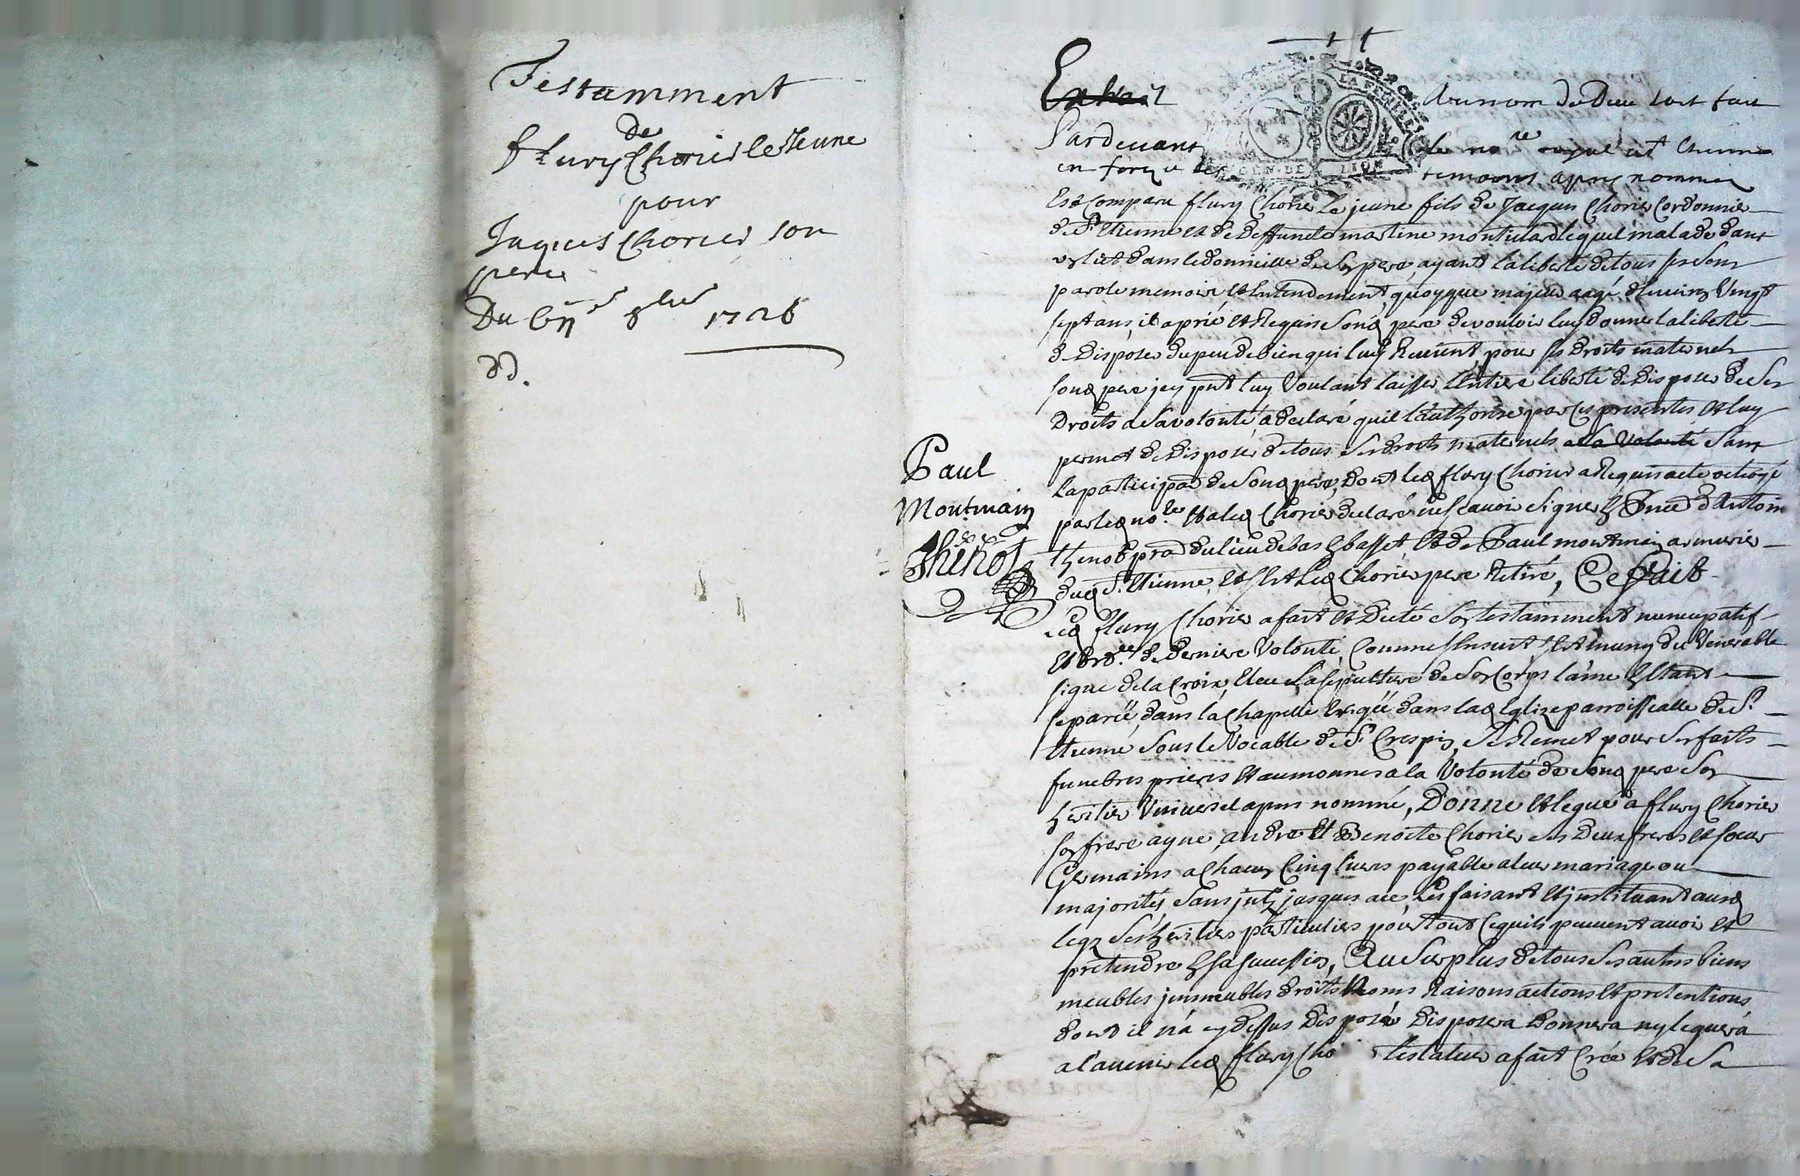 Testamment
de
fleury Chorier le Jeune
pour
Jaques Chorier son
pere
Du 8bre 1726
dd.
Paul
Montmain
Thenot
Extrait
Au nom de Dieu soit fait
Pardevant le no.re royal et
temoins apres nommes
Est Comparu fleury Chorier le jeune fils de Jacques Chorier Cordonnier
de St Etienne et de Deffunte martine lequel malade dans
un lict dans le domicille de son pere ayant la liberté de tous ses sens
parole memoire et Entendement quoyque majeur aagé d'Environ Vingt
sept ans, il a prié et Requis son pere de vouloir luy donner la liberté
de Disposer du peu de bien qui luy Revient pour ses droits maternels
son pere jcy luy Voulant laisser l'Entiere liberté de Disposer de ses
Droits a sa volonté, a declaré quil l'authorise par ces presentes et luy
permet de Disposer de tous ses droits maternels a sa Volonté sans
la de son pere, dont fleury Chorier a Requis acte octroyé
par no.re Chorier declaré ne scavoir signer d'Antoine
Thenot du lieu de et de Paul montmain armurier
St Etienne, Chorier pere Retiré, Ce fait
fleury Chorier a fait et Dicté son testamment nuncupatif
et de Derniere Volonté, Comme sensuit, sest muny du Venerable
signe de la Croix, Eleu la sepulture de son Corps l'ame Estant
separée, dans la Chapelle Erigée dans Eglize parroissialle de St
Etienne sous le Vocable de St Crespin, sest Remet pour ses faits
funebres prieres et aumonnes a la Volonté de son pere son
heritier Universel apres nommé, Donne et legue a fleury Chorier
son frere ayné, andré Et Benoite Chorier ses Deux freres et soeur
Germains a Chacun Cinq livres payable a leur mariage ou
majorités sans jusques a ce, Les faisant et jnstituant
ses heritiers particuliers pour tout Ce quils peuvent avoir et
pretendre En sa succession, Au Surplus de tous ses autres biens
meubles jmmeubles droits noms Raisons actions et pretentions
dont il n'a cy dessus Disposé Disposera donnera ny leguera
a l'avenir fleury Cho testateur a fait Créé et de sa